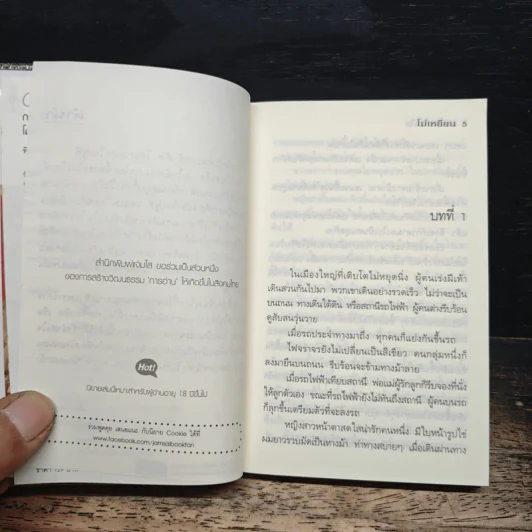 สำนักพิมพ์แจ่มใส ขอร่วมเป็นส่วนหนึ่ง
ของการสร้างวัฒนธรรม 'การอ่าน' ให้เกิดขึ้นในสังคมไทย
Hot!
นิยายเล่มนี้เหมาะสำหรับผู้อ่านอายุ 18 ปีขึ้นไป
ร่วมพูดคุย เสนอแนะ กับนิยาย Cookie ได้ที่
www.facebook.com/jamsaibookfan
โม่เหยียน 5
บทที่ 1
ในเมืองใหญ่ที่เติบโตไม่หยุดนิ่ง ผู้คนเร่งฝีเท้า
เดินสวนกันไปมา พวกเขาเดินอย่างรวดเร็ว ไม่ว่าจะเป็น
บนถนน ทางเดินใต้ดิน หรือสถานีรถไฟฟ้า ผู้คนต่างรีบร้อน
ดูสับสนวุ่นวาย
เมื่อรถประจำทางมาถึง ทุกคนก็แย่งกันขึ้นรถ
ไฟจราจรยังไม่เปลี่ยนเป็นสีเขียว คนกลุ่มหนึ่งก็
ลงมายืนบนถนน รีบร้อนจะข้ามทางม้าลาย
เมื่อรถไฟฟ้าเทียบสถานี พ่อแม่ผู้รักลูกก็รีบจองที่นั่ง
ให้ลูกตัวเอง ขณะที่รถไฟฟ้ายังไม่ทันถึงสถานี ผู้คนบนรถ
ก็ลุกขึ้นเตรียมตัวที่จะลงรถ
หญิงสาวหน้าตาสดใสน่ารักคนหนึ่ง มีใบหน้ารูปไข่
ผมยาวรวบมัดเป็นทางม้า ท่าทางสบายๆ เมื่อเดินผ่านทาง